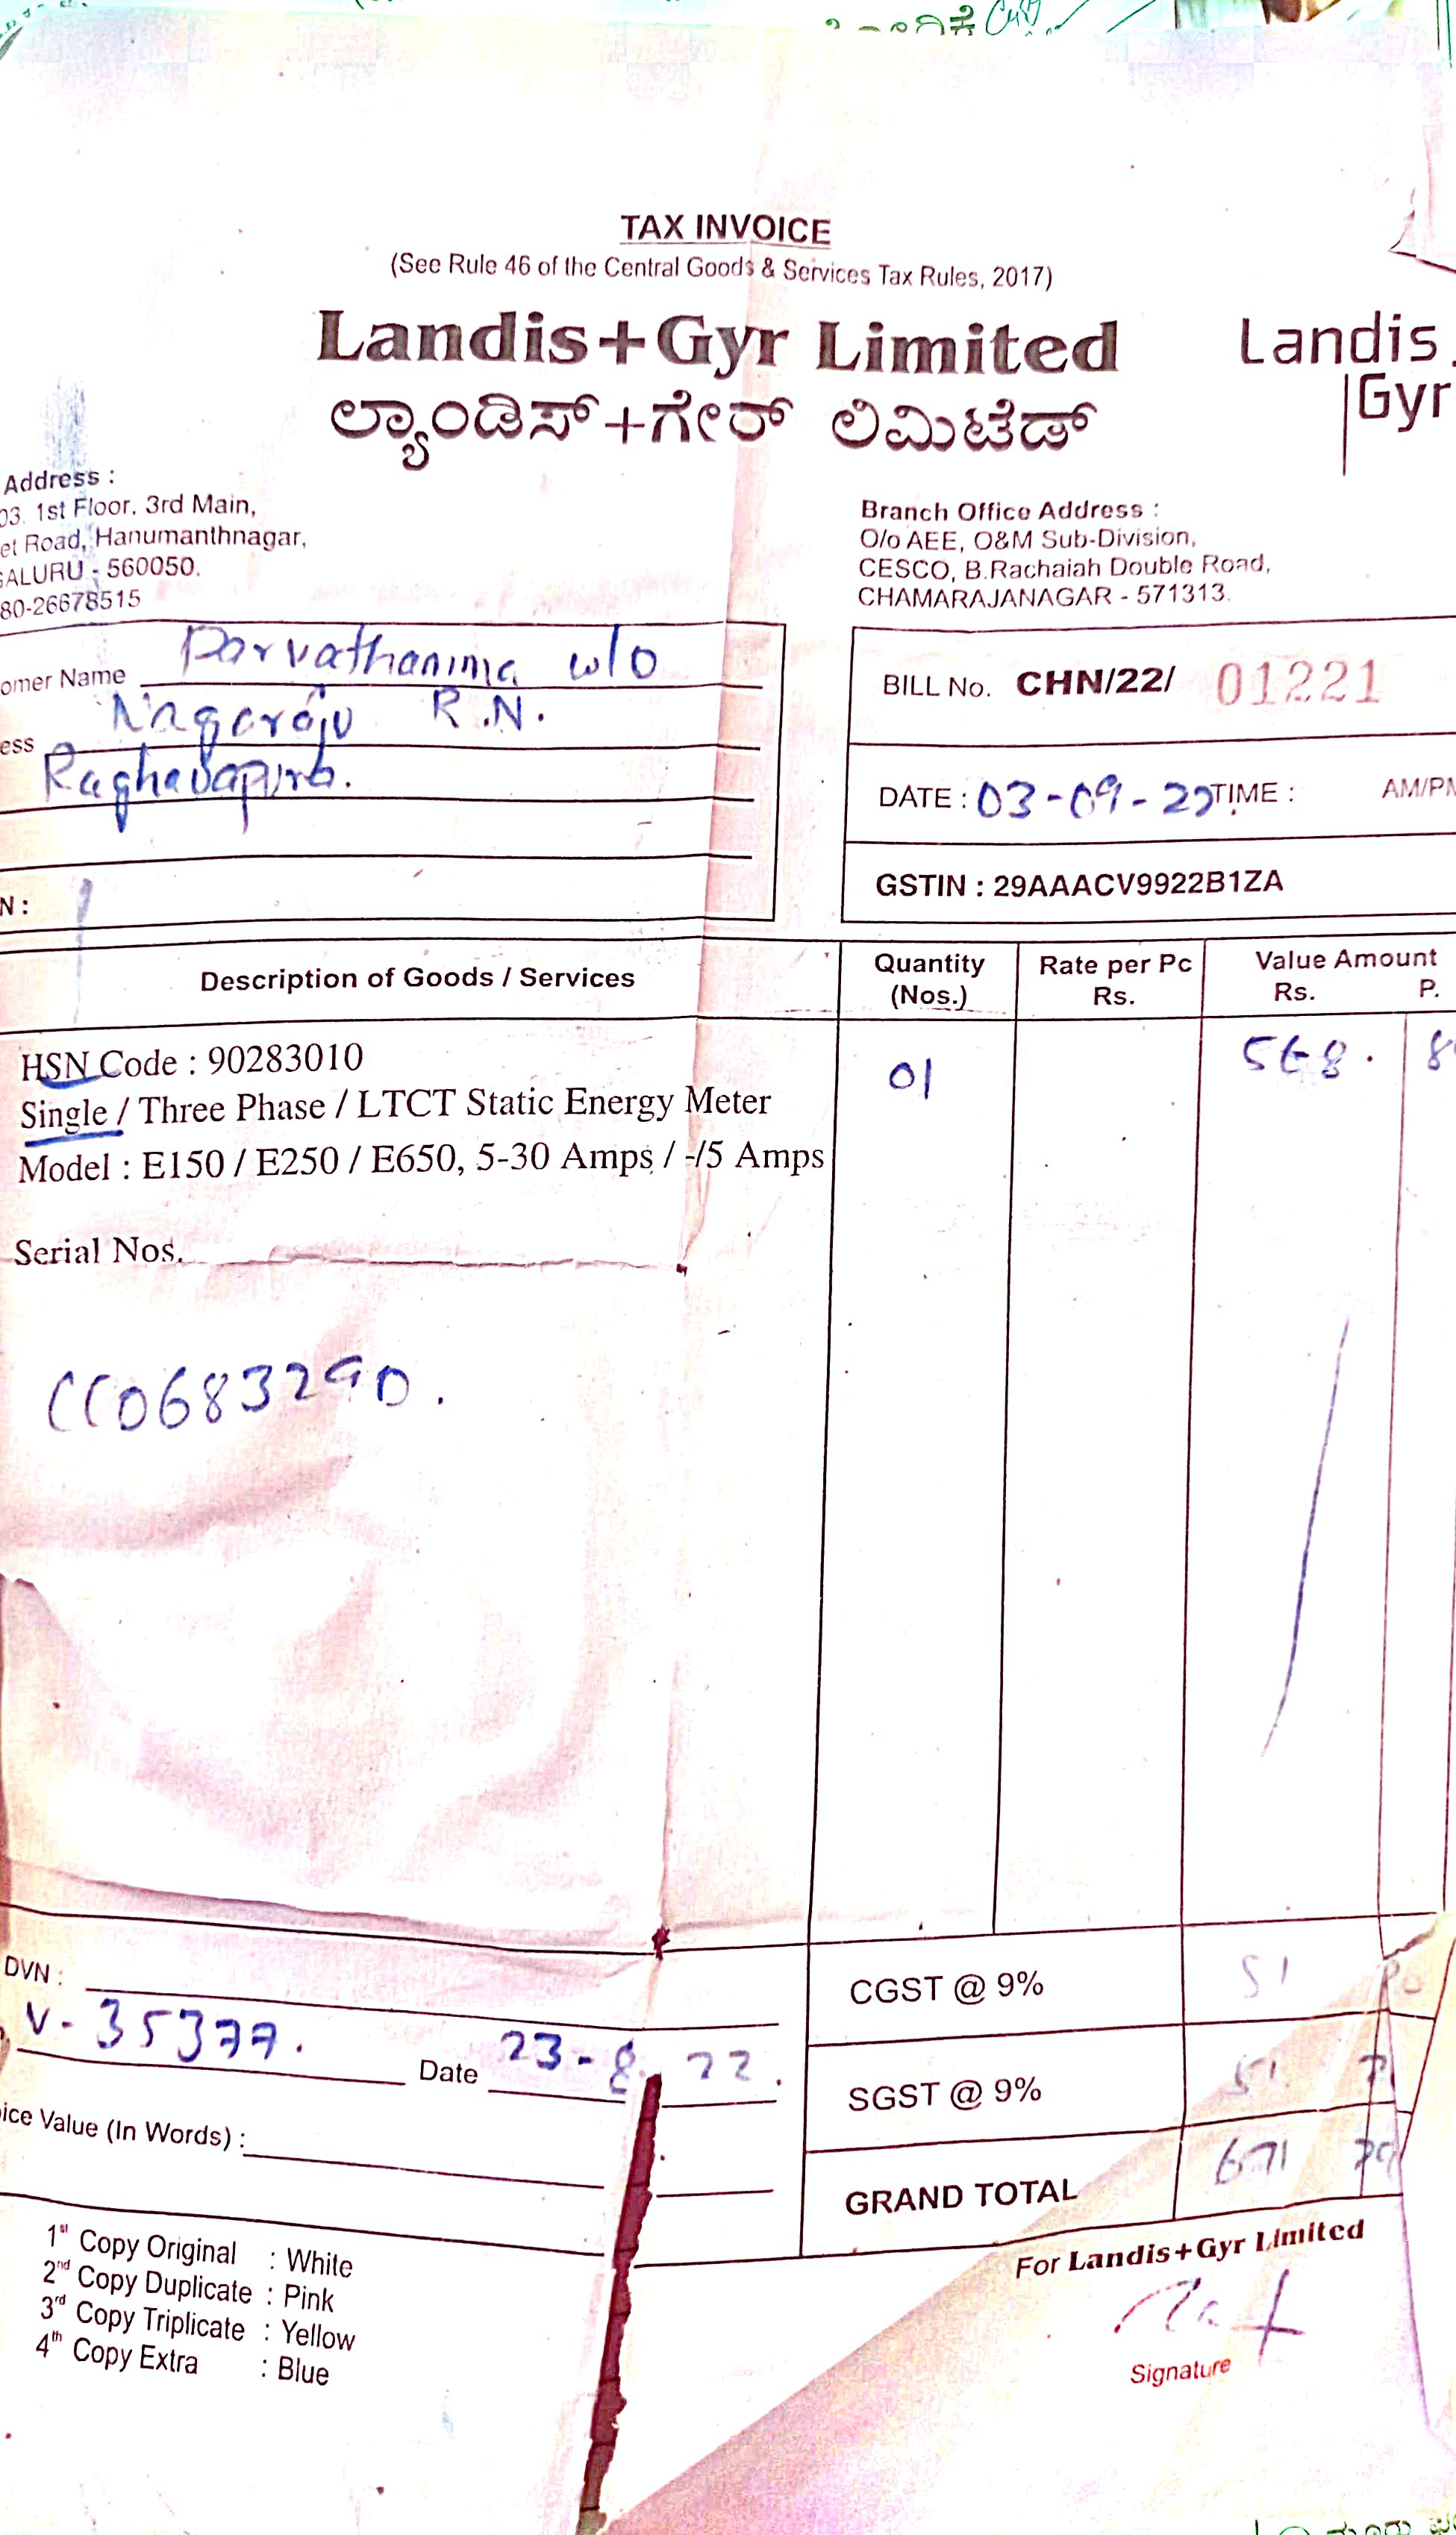 TAX INVOICE
(See Rule 46 of the Central Goods & Services Tax Rules, 2017)
Landis+Gyr Limited
ಲ್ಯಾಂಡಿಸ್+ಗೇರ್ ಲಿಮಿಟೆಡ್
Landis
Gyr
Address :
03. 1st Floor, 3rd Main,
et Road, Hanumanthnagar,
GALURU - 560050.
80-26678515
Branch Office Address :
O/o AEE, O&M Sub-Division,
CESCO, B.Rachaiah Double Road,
CHAMARAJANAGAR - 571313.
omer Name Parvathamma w/o
Nagaraju R.N.
ess
Raghavapura.
N :
BILL No. CHN/22/ 01221
DATE : 03-09-22 TIME : AM/PM
GSTIN : 29AAACV9922B1ZA
Description of Goods / Services
Quantity (Nos.)
Rate per Pc Rs.
Value Amount Rs. P.
HSN Code : 90283010
01
568.
Single / Three Phase / LTCT Static Energy Meter
Model : E150 / E250 / E650, 5-30 Amps / -/5 Amps
Serial Nos.
CC0683290.
DVN :
V- 35377.
Date 23-8-22.
ice Value (In Words) :
CGST @ 9% 51
SGST @ 9% 51
GRAND TOTAL 671
1st Copy Original : White
2nd Copy Duplicate : Pink
3rd Copy Triplicate : Yellow
4th Copy Extra : Blue
For Landis+Gyr Limited
Signature